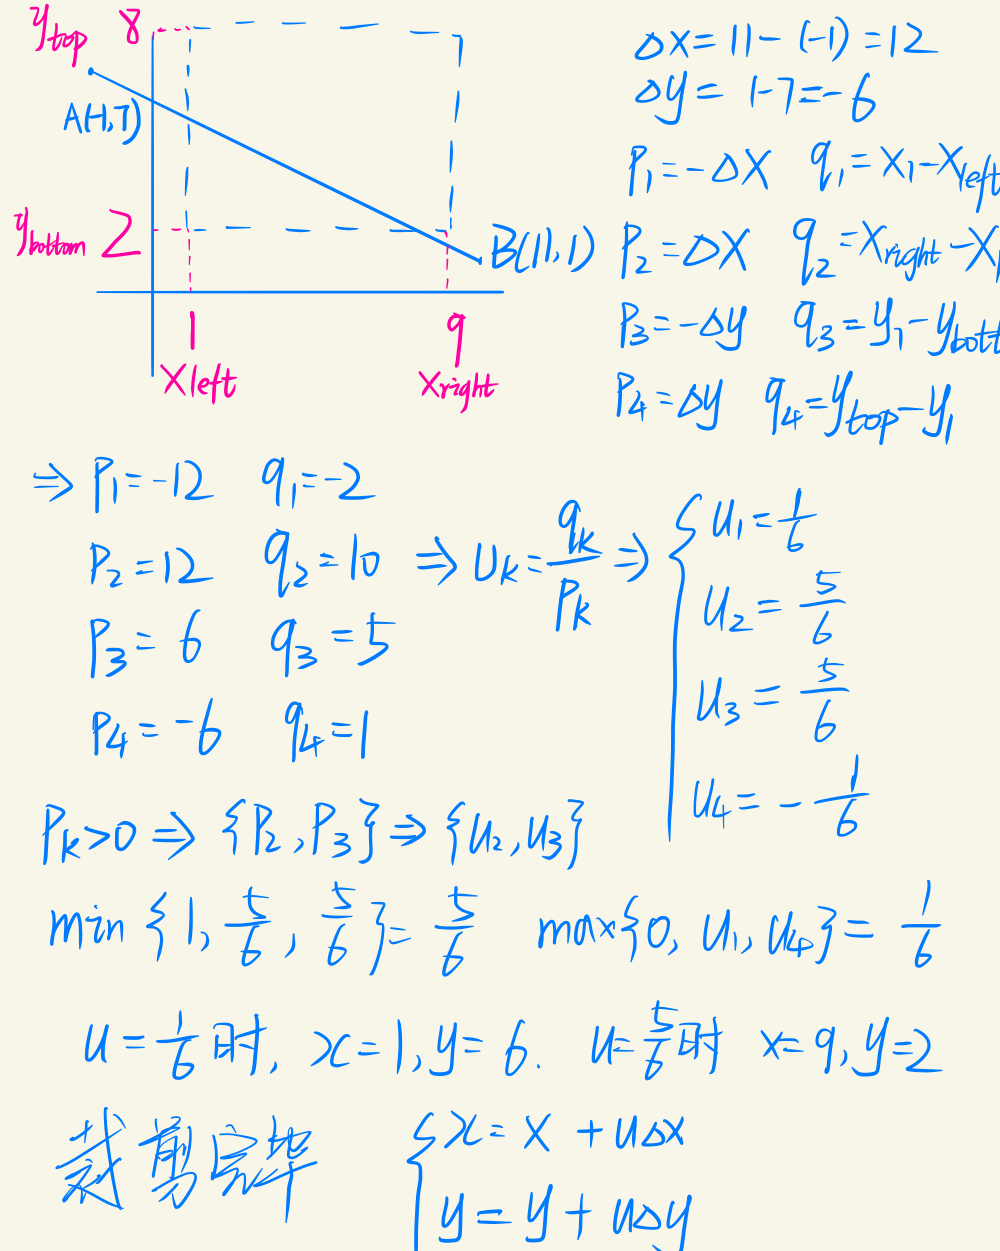 y_top 8
A(-1,7)
y_bottom 2
B(11,1)
1
x left
9
x right
Δx = 11 - (-1) = 12
Δy = 1-7 = -6
P₁ = -Δx q₁ = x₁ - x_left
P₂ = Δx q₂ = x_right - x₁
P₃ = -Δy q₃ = y₁ - y_bott
P₄ = Δy q₄ = y_top - y₁
⇒ P₁ = -12 q₁ = -2
P₂ = 12 q₂ = 10 ⇒ u_k = q_k/P_k ⇒
P₃ = 6 q₃ = 5
P₄ = -6 q₄ = 1
{ u₁ = 1/6
u₂ = 5/6
u₃ = 5/6
u₄ = -1/6
P_k > 0 ⇒ {P₂, P₃} ⇒ {u₂, u₃}
min {1, 5/6, 5/6} = 5/6 max{0, u₁, u₄} = 1/6
u = 1/6 时, x = 1, y = 6. u = 5/6 时 x = 9, y = 2
裁剪完毕
{ x = x + uΔx
y = y + uΔy